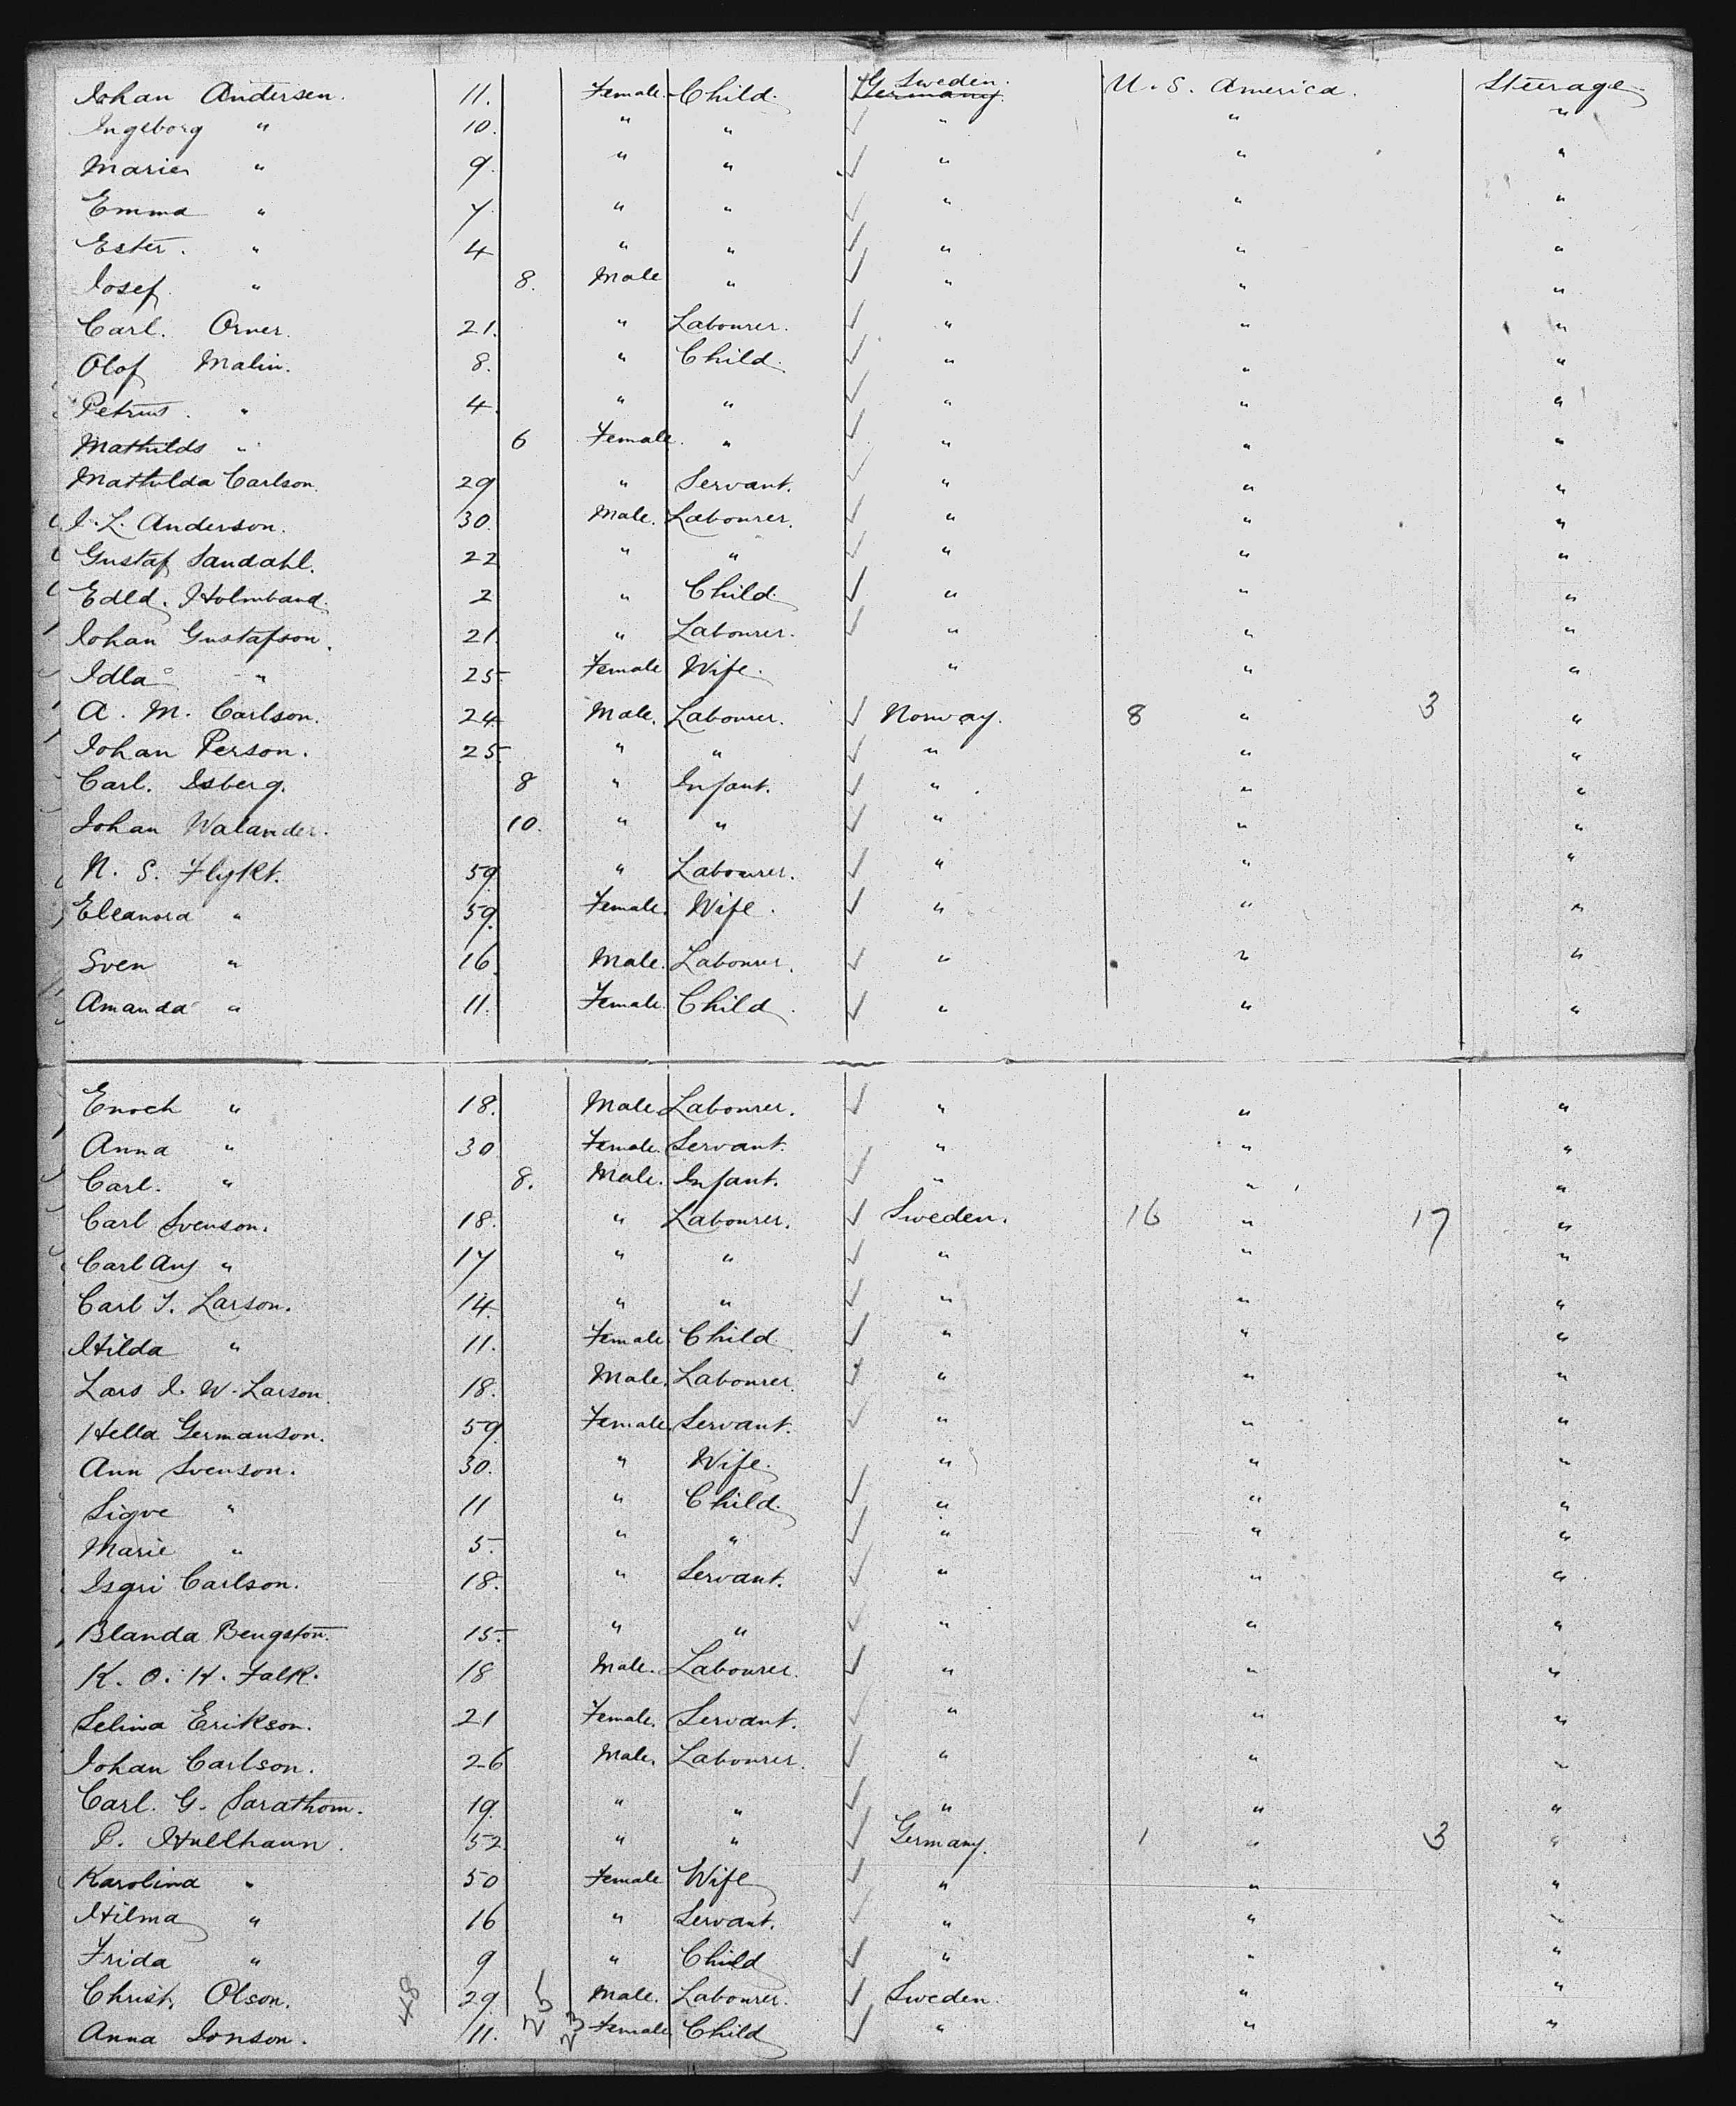 Johan Andersen. 11. Female. Child. Germany. Sweden. U. S. America. Steerage
Ingeborg " 10. " " " " "
Marie " 9. " " " " "
Emma " 7 " " " " "
Ester. " 4 " " " " "
Josef " 8. Male " " " "
Carl. Orner. 21. " Labourer. " " "
Olof Malin. 8. " Child. " " "
Petrus. " 4. " " " " "
Mathilds " 6 Female. " " " "
Mathilda Carlson. 29 " Servant. " " "
J. L. Anderson. 30. Male. Labourer. " " "
Gustaf Sandahl. 22 " " " " "
Edld. Holmband. 2 " Child " " "
Johan Gustafson. 21. " Labourer. " " "
Idla " 25. Female Wife. " " "
A. M. Carlson. 24. Male. Labourer. Norway. 8 " 3 "
Johan Person. 25. " " " " "
Carl. Isberg. 8 " Infant. " " "
Johan Walander. 10. " " " " "
N. S. Flykt. 59 " Labourer. " " "
Eleanora " 59. Female. Wife. " " "
Sven " 16. Male. Labourer. " " "
Amanda " 11. Female. Child. " " "
Enoch " 18. Male Labourer. " " "
Anna " 30 Female. Servant. " " "
Carl. " 8. Male. Infant. " " "
Carl Svenson. 18. " Labourer. Sweden. 16 " 17 "
Carl Aug " 17 " " " " "
Carl J. Larson. 14. " " " " "
Hilda " 11. Female. Child " " "
Lars J. W. Larson 18. Male. Labourer. " " "
Hella Germanson. 59 Female. Servant. " " "
Ann Svenson. 30. " Wife. " " "
Sigve " 11 " Child. " " "
Marie " 5. " " " " "
Isgri Carlson. 18. " Servant. " " "
Blanda Bengston. 15. " " " " "
K. O. H. Falk. 18 Male. Labourer. " " "
Selina Erikson. 21 Female. Servant. " " "
Johan Carlson. 26 Male. Labourer. " " "
Carl. G. Sarathom. 19. " " " " "
P. Hullhaun. 52. " " Germany. 1 " 3 "
Karolina " 50 Female Wife " " "
Hilma " 16 " Servant. " " "
Frida " 9 " Child " " "
Christ. Olson. 48 29 25 Male. Labourer. Sweden. " "
Anna Jonson. 11. 23 Female Child " " "